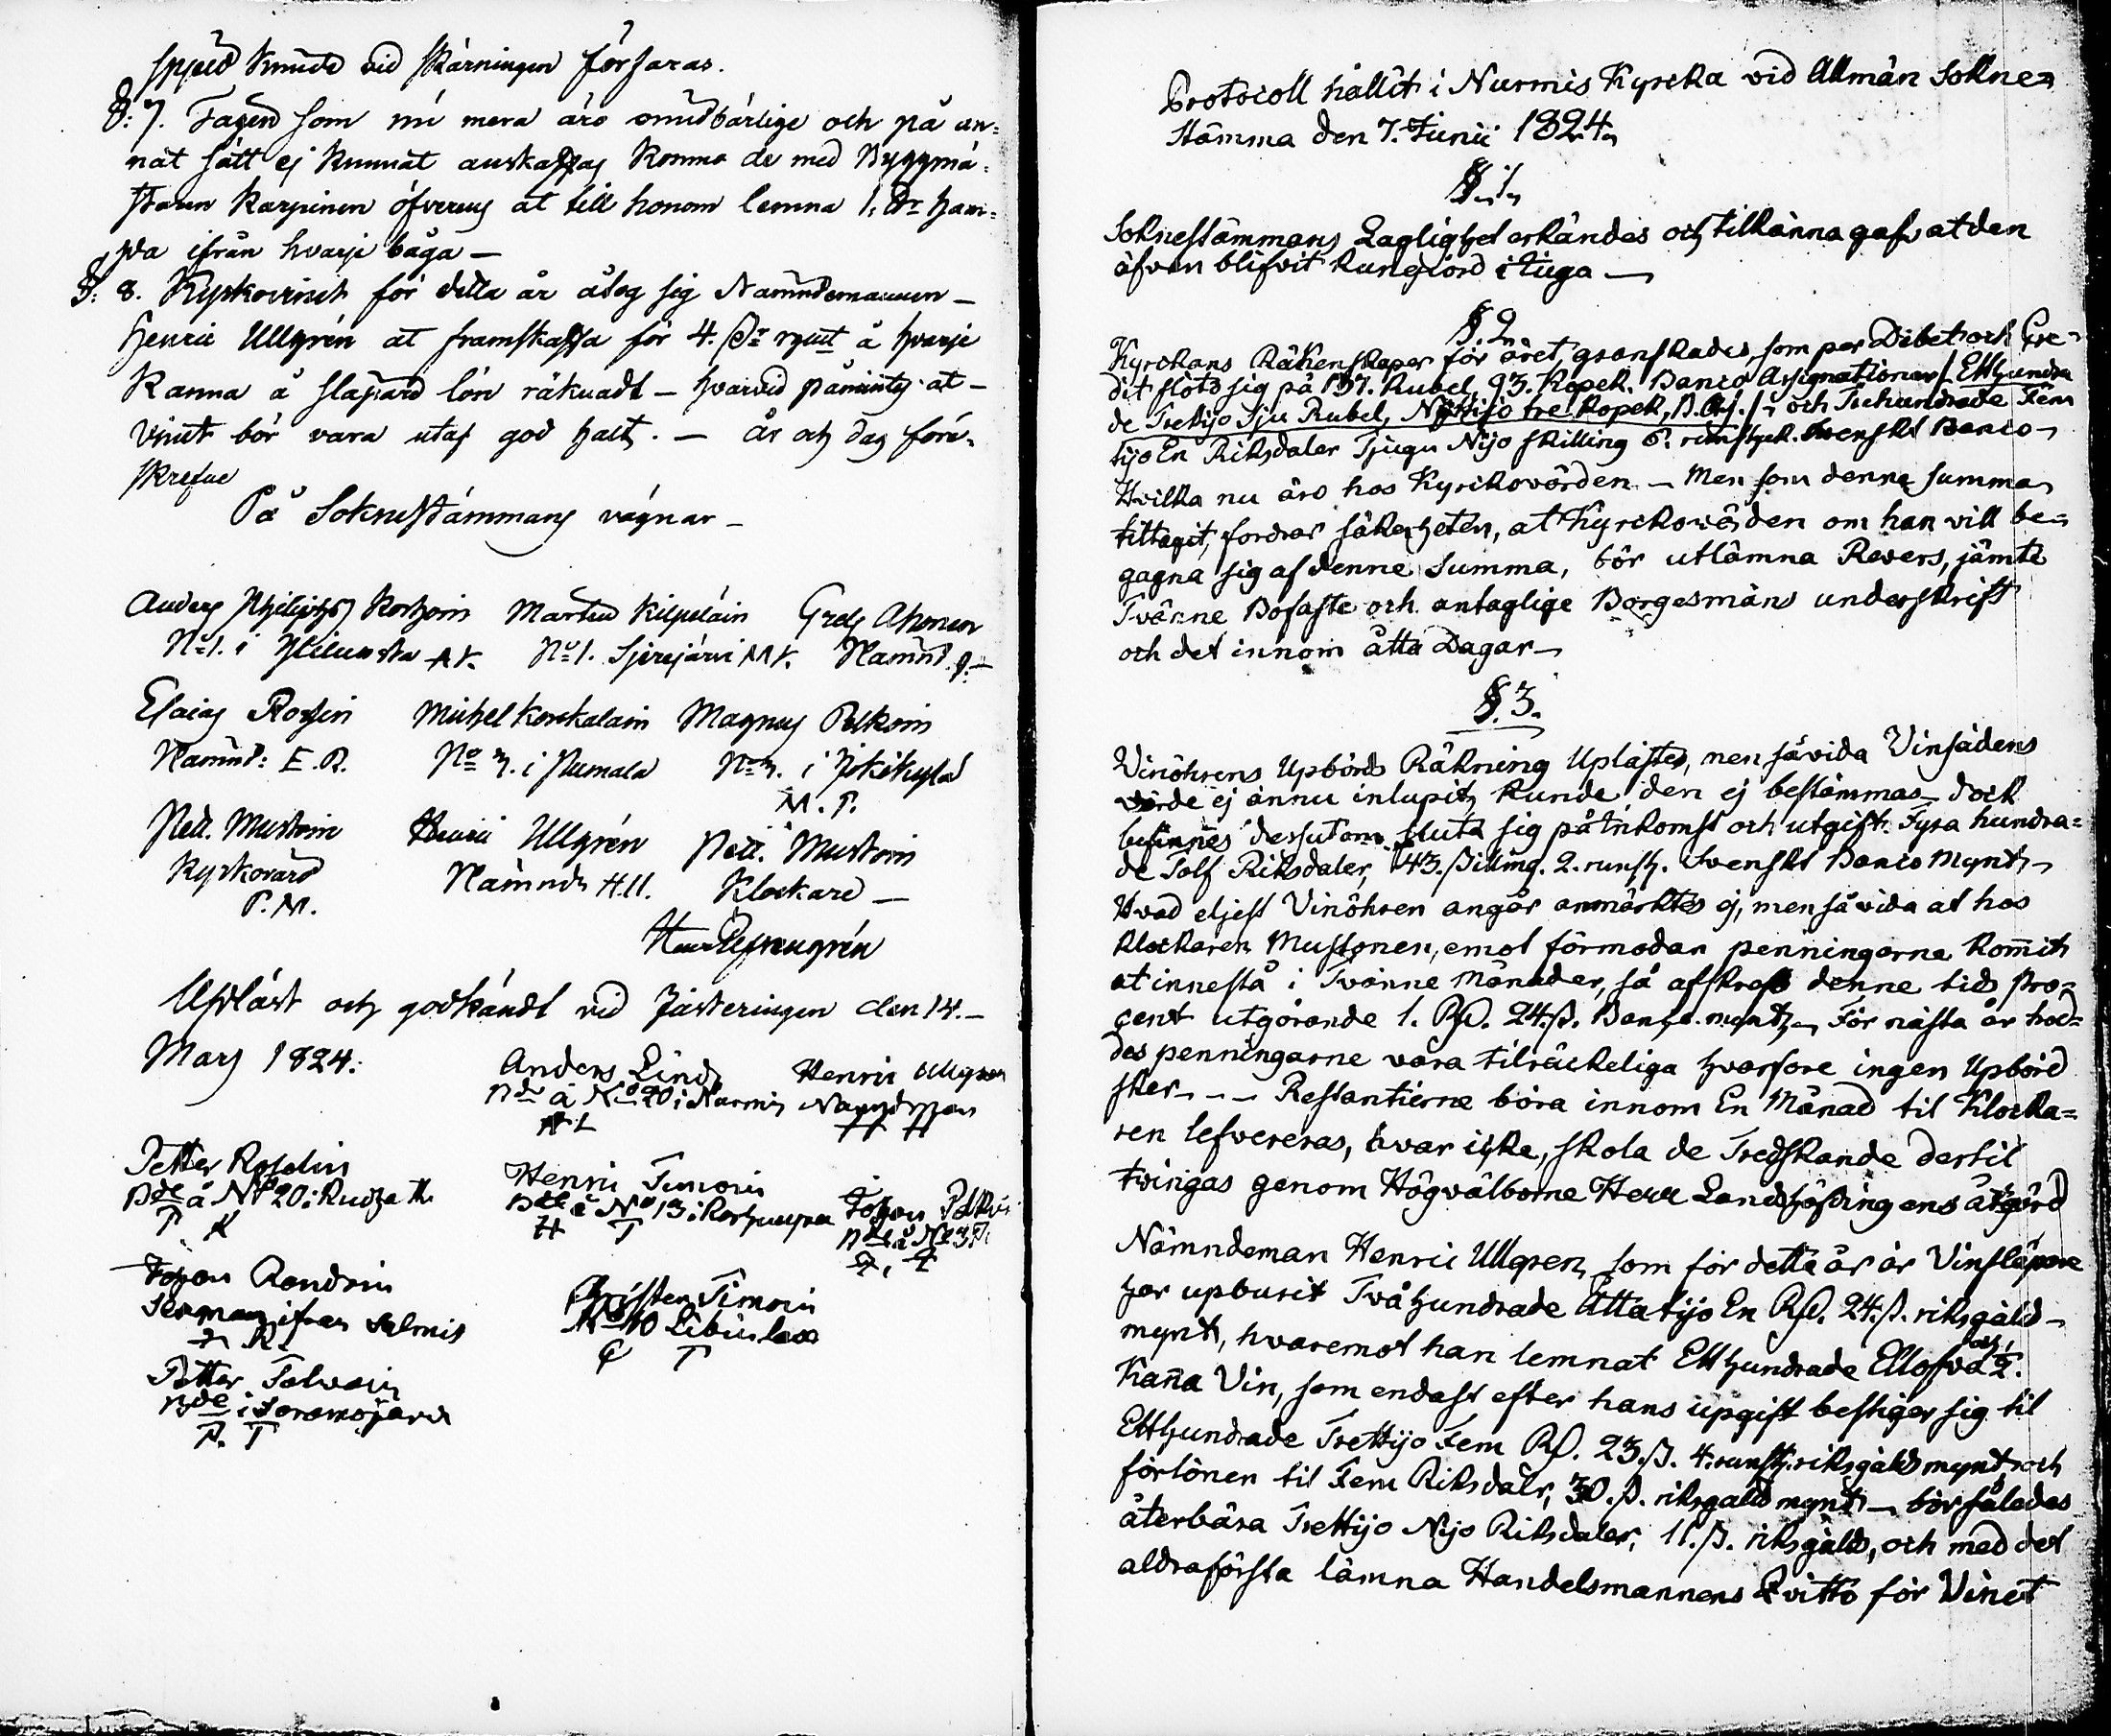 spjeld kunde vid skärningen förfaras.
§: 7. Tagen som nu mera äro omistbärlige och på an=
nat sätt ej kunnat anskaffas komma de med Byggmä=
staren Karpinen öfverens at till honom lemna 1. ham=
pa ifrån hvarje båga —
§: 8. Kyrkovinet för detta år åtog sig Nämndemannen —
Henric Ullgrén at framskaffa för 4. mynt å hvarje
Kanna å släpard lön räknadt — hvarvid påmintes at —
Vinet bör vara utaf god halt. — år och dag före=
skrefne
På Soknestämmans vägnar —
Anders Philipsson Korhoin Mårten Kilpeläin Grels Ahonen
No 1. i Ylikunda No 1. Sjirejärvi M K. Nämnd. g:—
Esaias Rossin Michel Korkalain Magnus Pelkoin
Nämnd: E. R. No 3. i Pumala No 3. i Jokikylä
M. P.
Pett. Mustoin Henric Ullgrén Pett. Mustoin
Kyrkovärd Nämnd: H. U. Klockare —
P. M.
Upläst och godkändt vid Justeringen den 14. —
Mars 1824: Anders Lind Henric Ullgren
Bde å No 20 i Nurmis
A L H H
Petter Rossin Henric Timoin
Bde å No 20 i Bde å No 13 i Johan Pelkoin
P R H T Bde å No 3
Johan Rondoin Christer Timoin
ifrån Salmis No 10 Libinlax
J. R. C T
Petter Tolvain
Bde i Saramojärvi
P. T
Protocoll hållit i Nurmis Kyrcka vid Allmän Sokne=
Stämma den 7. Junii 1824.
§. 1.
Soknestämmans Laglighet erkändes och tillkänna gafs at den
äfven blifvit kungiord i tuga —
§. 2.
Kyrckans Räkenskaper för året, granskades, som per Debet och Cre=
dit slöto sig på 137. Rubel, 93. Kopek. Banco Assignationer /: Etthundra
de Trettijo Sju Rubel, Nijttijo tre Kopek, B. As. :/ och Trehundrade Fem
tijo En Riksdaler Tjugu Nijo skilling 6. runstyck. Svenskt Banco —
Hvilka nu äro hos Kyrckovärden — Men som denna summa
tilltagit, fordrar säkerheten, at Kyrckovärden om han vill be=
gagna sig af denne Summa, bör utlämna Revers, jämte
Tvänne Bofaste och antaglige Borgesmäns underskrift
och det innom åtta Dagar —
§. 3.
Vinöhrens Upbörds Räkning Uplästes, men såvida Vinsädens
värde ej ännu inlupit, kunde den ej bestämmas — dock
befinnes dessutom sluta sig på Inkomst och utgift Fyra hundra=
de Tolf Riksdaler, 43. skilling. 2. runst. Svenskt Banco Mynt —
Hvad eljest Vinöhren angår anmärktes ej, men såvida at hos
klockaren Mustonen, emot förmodan penningarne kommit
at innestå i Tvänne Månader, så afskrefs denne tids pro=
cent utgörande 1. Rd. 24. s. Banco mynt — För nästa år trod=
des penningarne vara tilräckeliga hvarfore ingen Upbörd
sker — — Restantierne böra innom En Månad til Klocka=
ren lefvereras, hvar icke, skola de Tredskande dertil
tvingas genom Högvälborne Herr Landshöfdingens åtgörd
Nämndeman Henric Ullgren, som för detta år är Vinsläpare
har upburit Två hundrade Åttatijo En Rd. 24. s. riksgälds
mynt, hvaremot han lemnat Etthundrade Ellofva och ½.
Kanna Vin, som endast efter hans upgift bestiger sig til
Etthundrade Trettijo Fem Rd. 23. s. 4. runst. riksgälds mynt, och
förlönen til Fem Riksdalr, 30. s. riksgälds mynt — bör således
återbära Trettijo Nijo Riksdaler, 11. s. riksgälds, och med det
aldraförsta lämna Handelsmannens Qvitto för Vinet